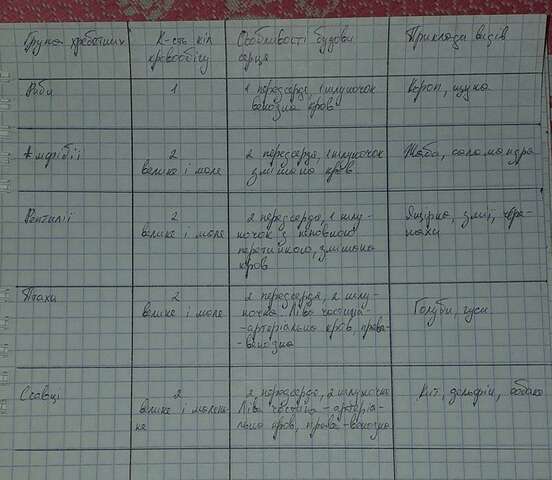 Група хребетних
К-сть кіл
кровообігу
Особливості будови
серця
Приклади видів
Риби
1
1 передсердя, 1 шлуночок
венозна кров
Короп, щука
Амфібії
2
велике і мале
2 передсердя, 1 шлуночок
змішана кров
Жаба, саламандра
Рептилії
2
велике і мале
2 передсердя, 1 шлу-
ночок з неповною
перетинкою, змішана
кров
Ящірка, змії, чере-
пахи
Птахи
2
велике і мале
2 передсердя, 2 шлу-
ночка. Ліва частина-
-артеріальна кров, права-
-венозна
Голуби, гуси
Ссавці
2
велике і мале
2 передсердя, 2 шлуночка
Ліва частина - артеріа-
льна кров, права - венозна
Кит, дельфін, собака